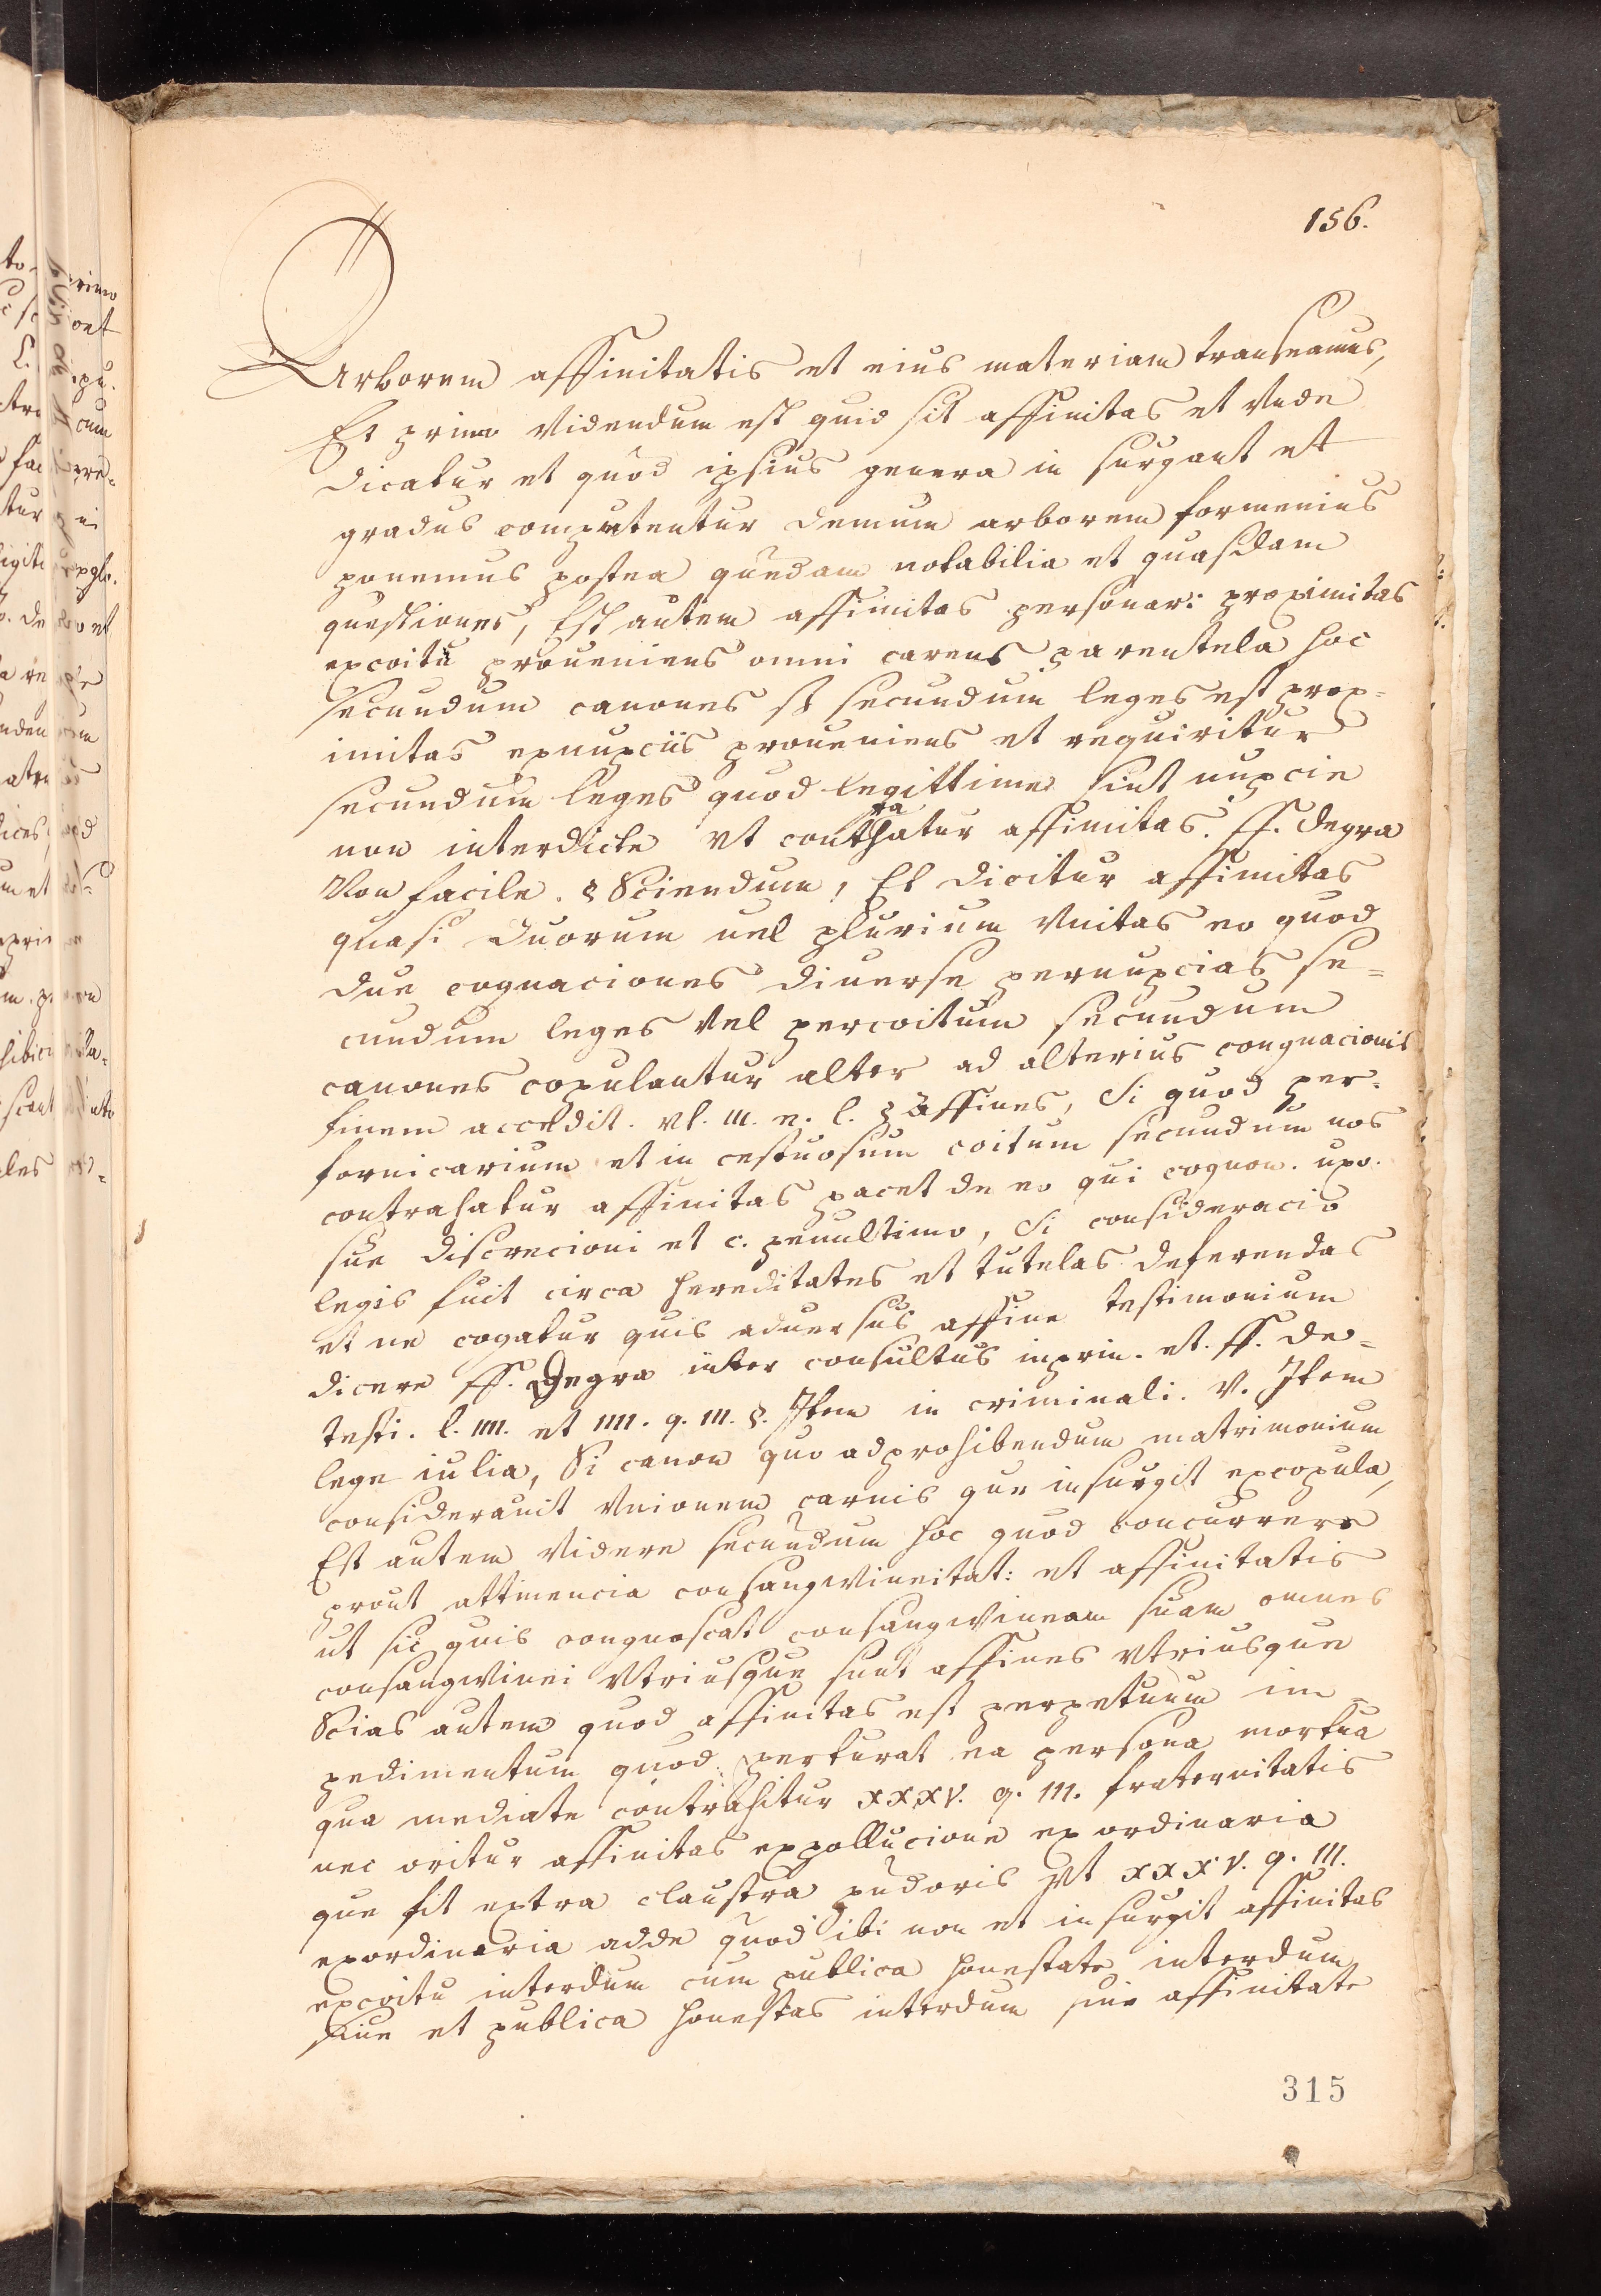 156.
Arborem affinitatis et eius materiam transeamus,
Et primo Videndum est quid sit affinitas et Vnde
dicatur et quod ipsius genera in surgant et
gradus computentur demum arborem formemius
ponemus postea quedam notabilia et quasdam
questiones, Est autem affinitas personar: proximitas
excoitu proueniens omni carens parentela hoc
secundum canones sz secundum leges est prox=
imitas exnupciis proueniens et requiritur
secundum leges quod legittime sint nupcie
non interdicte vt conthatur affinitas. ff. degra
ra
Non facile. § Sciendum, Et dicitur affinitas
quasi duorum uel plurium Vnitas eo quod
due cognaciones diuerse pernupcias se=
cundum leges vel percoitum secundum
canones copulantur alter ad alterius congnacionis
finem accedit. vt. ff. e. l. § affines, Si quod per=
fornicarium et in cestuosum coitum secundum nos
contrahatur affinitas pacet de eo qui cognon. uxo.
sue discrecioni et c. penultimo, Si consideracio
legis fuit circa hereditates et tutelas deferendas
et ne cogatur quis aduersus affine testimonium
dicere ff. Degra inter consultus inprin. et. ff. de=
testi. l. IIII. et IIII. q. III. §. Item in criminali. V. Item
lege iulia, Si canon quo adprohibendum matrimonium
considerauit Vnionem carnis que insurgit excopula,
Est autem Videre secundum hoc quod concurrere
prout attinencia consangwineitat: et affinitatis
ut sic quis congnoscat consangwineam suam omnes
consangwinei Vtriusque sunt affines Vtriusque
Scias autem quod affinitas est perpetuum im=
pedimentum quod perturat ea persona mortua
qua mediate contrahitur XXXV. q. III. fraternitatis
nec oritur affinitas expollucione ex ordinaria
que fit extra claustra pudoris Vt XXXV. q. III.
exordinaria adde quod ibi non et insurgit affinitas
excoitu interdum cum publica honestate interdum
siue et publica honestas interdum sine affinitate
315